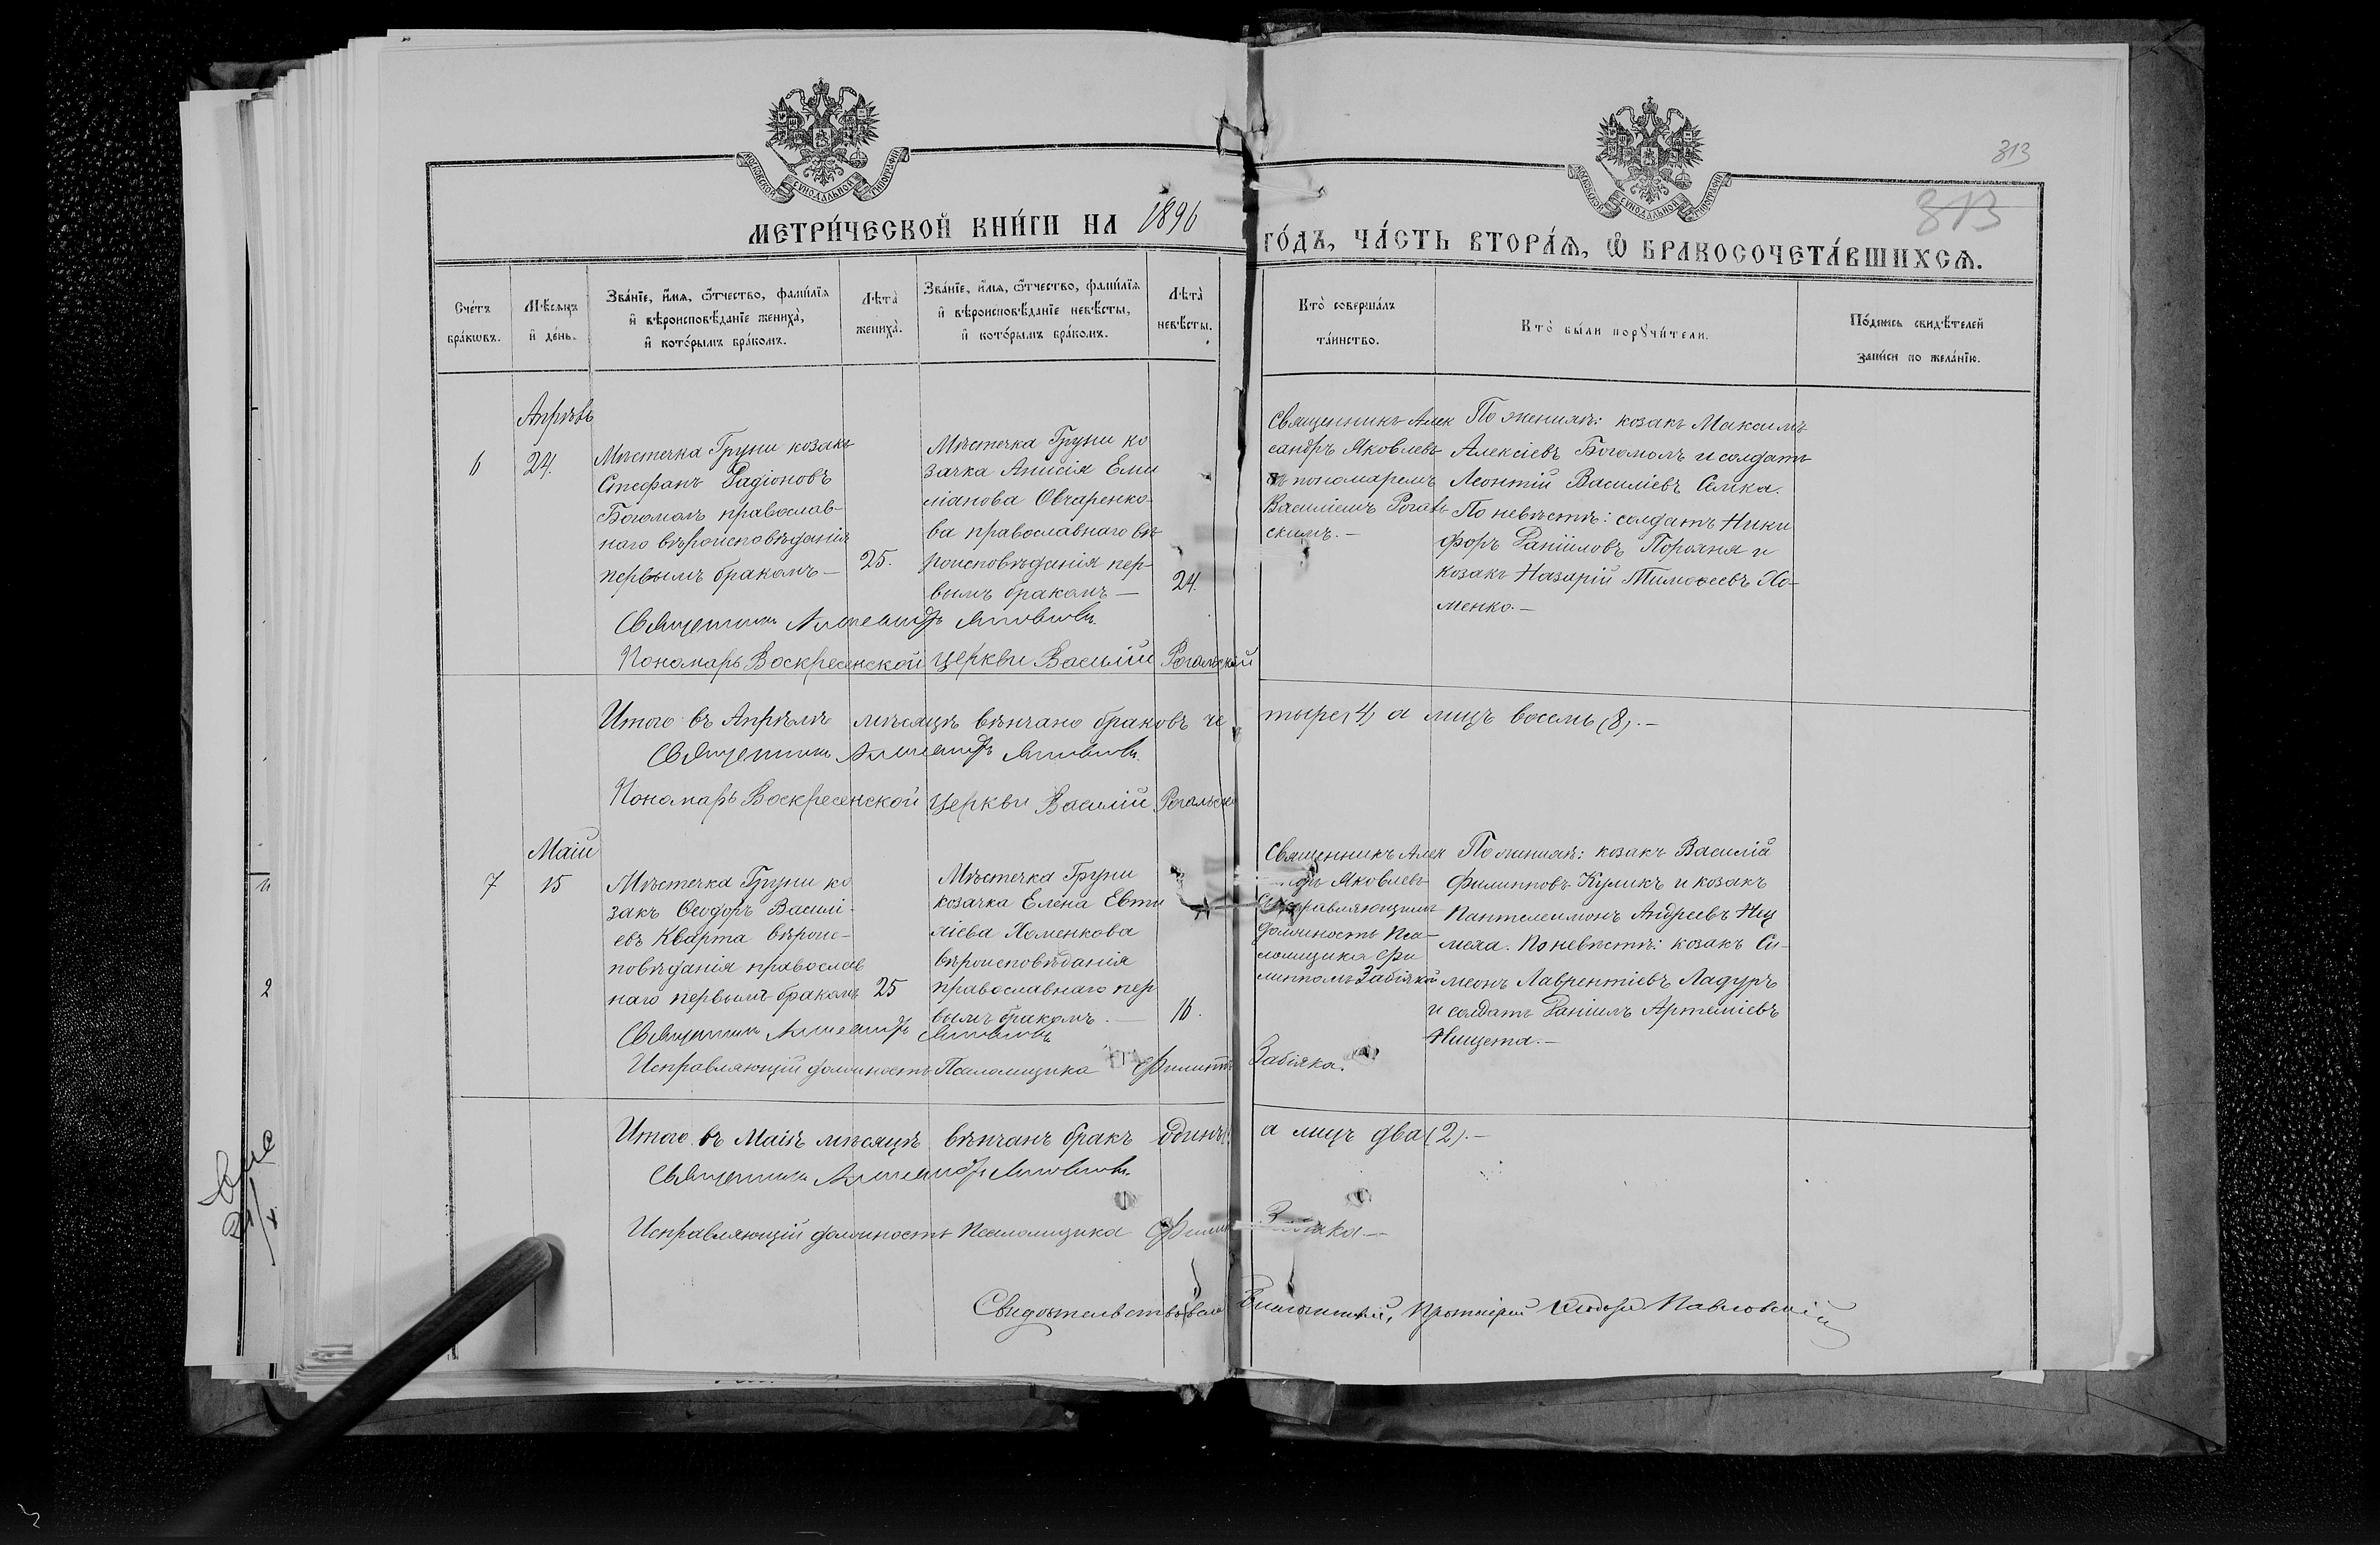 313
313
МОСКОВСКОЙ СѴНОДАЛЬНОЙ ТИПОГРАФІИ
МОСКОВСКОЙ СѴНОДАЛЬНОЙ ТИПОГРАФІИ
МЕТРИ́ЧЕСКОЙ КНИ́ГИ НА 1896 ГО́ДЪ, ЧА́СТЬ ВТОРА́Ѧ, Ѡ БРАКОСОЧЕТА́ВШИХСѦ.
Сче́тъ
бра́кѡвъ.
Мѣ́сѧцъ
и҆ де́нь.
Зва́нїе, и҆́мѧ, ѻ҆́тчество, фами́лїѧ
и҆ вѣроисповѣ́данїе жениха̀,
и҆ кото́рымъ бра́комъ.
Лѣта̀
жениха̀.
Зва́нїе, и҆́мѧ, ѻ҆́тчество, фами́лїѧ
и҆ вѣроисповѣ́данїе невѣ́сты,
и҆ кото́рымъ бра́комъ.
Лѣта̀
невѣ́сты.
Кто̀ соверша́лъ
та́инство.
Кто̀ бы́ли порꙋчи́тели.
По́дпись свидѣ́телей
за́писи по жела́нїю.
Апрѣль
6
24.
Мѣстечка Груни козакъ
Стефанъ Радіоновъ
Богомолъ православ-
наго вѣроисповѣданія
первымъ бракомъ —
25.
Мѣстечка Груни ко
зачка Анисія Еми
ліанова Овчаренко-
ва православнаго вѣ
роисповѣданія пер-
вымъ бракомъ —
24.
Священникъ Алек
сандръ Яковлевъ
съ пономаремъ
Василіемъ Рогаль
скимъ. —
По женихѣ: козакъ Максимъ
Алексіевъ Богомолъ и солдатъ
Леонтій Василіевъ Семка.
По невѣстѣ: солдатъ Ники
форъ Даніиловъ Порохня и
козакъ Назарій Тимоѳеевъ Хо-
менко. —
Священникъ Александръ Яковлевъ
Пономарь Воскресенской церкви Василій Рогальскій
Итого въ Апрѣлѣ мѣсяцѣ вѣнчано браковъ че тыре (4) а лицъ восемь (8). —
Священникъ Александръ Яковлевъ
Пономарь Воскресенской церкви Василій Рогальскі
Маій
7
15
Мѣстечка Груни ко
закъ Ѳеодоръ Василі-
евъ Кварта вѣроис-
повѣданія православ
наго первымъ бракомъ
25
Мѣстечка Груни
козачка Елена Евти
хіева Хоменкова
вѣроисповѣданія
православнаго пер
вымъ бракомъ. —
16.
Священникъ Алек
Яковлевъ
исправляющимъ
должность Пса-
ломщика Фи
липпомъ Забіякой
По женихѣ: козакъ Василій
Филипповъ Куликъ и козакъ
Пантелеимонъ Андреевъ
По невѣстѣ: козакъ Си-
меонъ Лаврентіевъ Ладуръ
и солдатъ Даніилъ Артеміевъ
Нищета. —
Священникъ Александръ Яковлевъ
Исправляющій должность Псаломщика Филиппъ Забіяка.
Итого въ Маіѣ мѣсяцѣ вѣнчанъ бракъ одинъ а лицъ два (2). —
Священникъ Александръ Яковлевъ
Исправляющій должность Псаломщика
Свидѣтельствовалъ Благочинный, Протоіерей Ѳеодоръ Павловскій
2